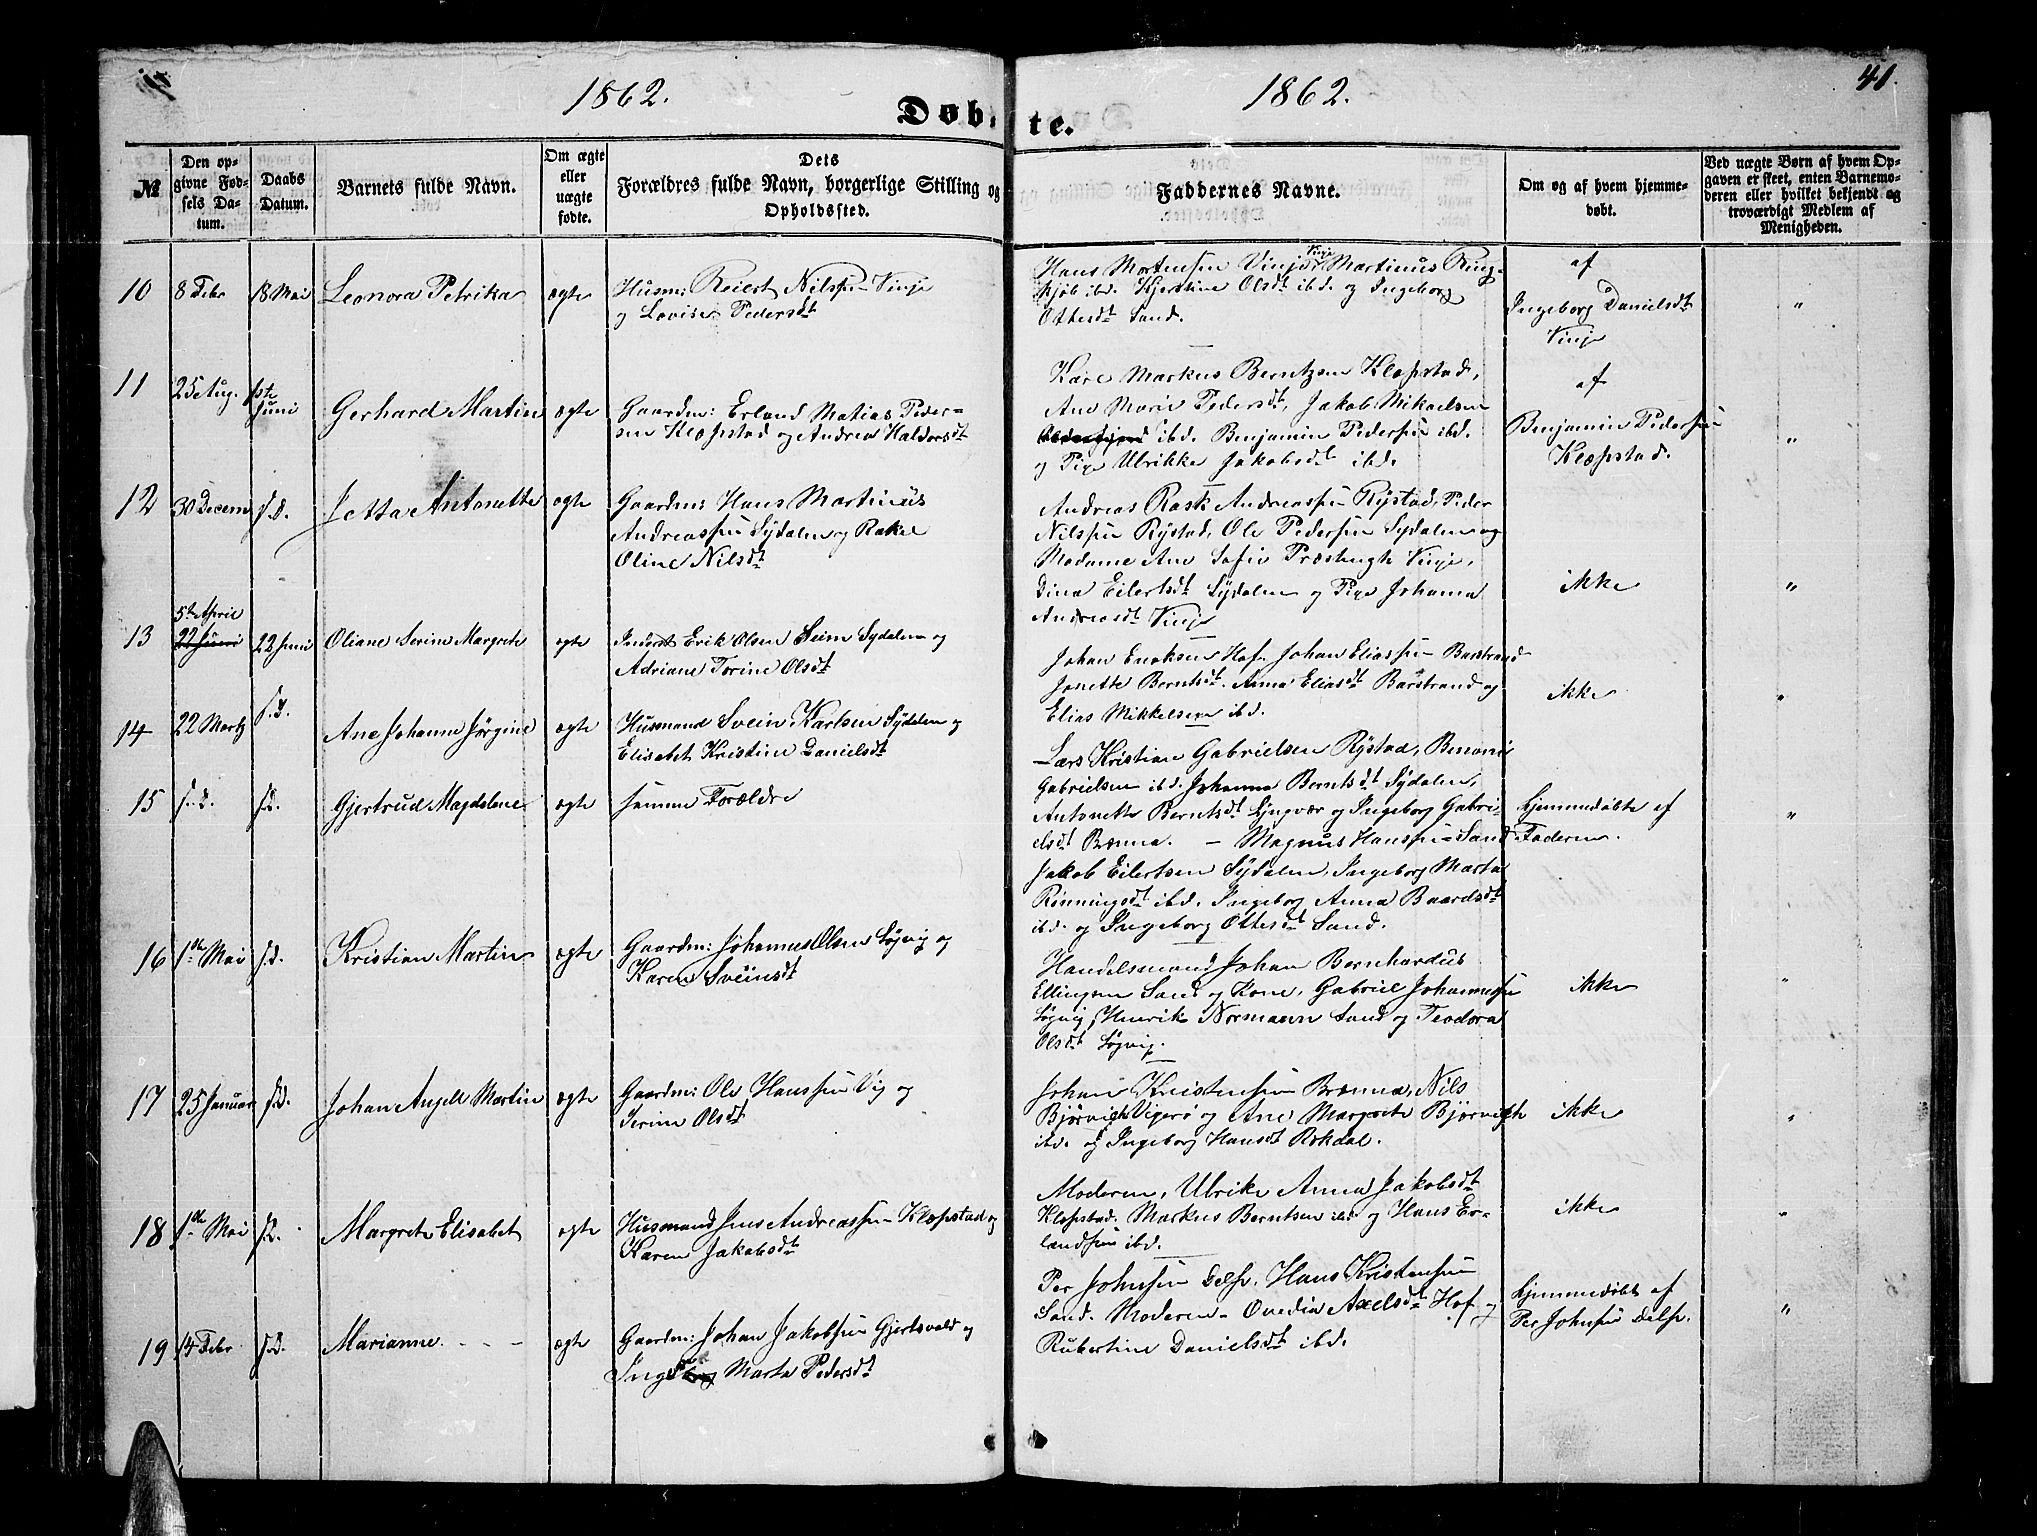 1862.
1862.
41.
Døb
te.
№
Den op-
givne Fød-
sels Da-
tum.
Daabs
Datum.
Barnets fulde Navn.
Om ægte
eller
uægte
fødte.
Dets
Forældres fulde Navn, borgerlige Stilling og
Opholdssted.
Faddernes Navne.
Om og af hvem hjemme-
døbt.
Ved uægte Børn af hvem Op-
gaven er skeet, enten Barnemo-
deren eller hvilket bekjendt og
troværdigt Medlem af
Menigheden.
10
8 Febr
18 Mai
Leonora Petrika
ægte
Husm: Reiert Nilssen Vinje
og Lovise Pedersdt
Hans Mortensen Vinje, Martinus Ring-
kjöb ibd. Kjerstine Olsdt ibd. og Ingeborg
Ottesdt Sand.
af
Ingeborg Danielsdt
Vinje
"
11
25 Aug.
1ste
Juni
Gerhard Martin
ægte
Gaardm: Erland Matias Peder-
sen Klæpstad og Andrea Haldorsdt
Karl Markus Berntzen Klæpstad,
Ane Marie Pedersdt, Jakob Mikaelsen
ibd. Benjamin Pedersen ibd.
og Pige Ulrikke Jakobsdt ibd.
af
Benjamin Pedersen
Klæpstad.
"
12
30 Decem
s.D.
Jetta Antonette
ægte
Gaardm: Hans Martinus
Andreassen Sydalen og Rakel
Oline Nilsdt
Andreas Rask Andreassen Rystad, Peder
Nilssen Rystad, Ole Pedersen Sydalen og
Madame Ane Sofie Præstengte Vinje,
Dina Eilertsdt Sydalen og Pige Johanna
Andreasdt Vinje
ikke
"
13
5te April
22 Juni
22 Juni
Oliane Serine Margrete
ægte
Inderst Erik Olsen Seim Sydalen og
Adriane Torine Olsdt
Johan Enoksen Hof. Johan Eliassen Barstrand
Jonette Berntsdt. Anna Eliasdt Barstrand og
Elias Mikkelsen ibd.
ikke
"
14
22 Martz
s.D.
Ane Johanne Jørgine
ægte
Husmand Svein Karlsen Sydalen og
Elisabet Kristine Danielsdt
Lars Kristian Gabrielsen Rystad, Benoni
Gabrielsen ibd. Johanna Berntsdt Sydalen,
Antonette Berntsdt Lyngvær og Ingeborg Gabri-
elsdt Brenna. – Magnus Hanssen Sand
15
s.D.
s.D.
Gjertrud Magdalene
ægte
samme Forældre
Hjemmedøbte af
Faderen.
"
Jakob Eilertsen Sydalen, Ingeborg Marta
Rønningsdt ibd. Ingeborg Anna Baardsdt
ibd. og Ingeborg Ottesdt Sand.
16
1ste Mai
s.D.
Kristian Martin
ægte
Gaardm: Johannes Olsen Løgvig og
Karen Sveinsdt
Handelsmand Johan Bernhardus
Ellingsen Sand og Kone, Gabriel Johannessen
Løgvig, Henrik Normann Sand og Teodora
Olsdt Løgvig.
ikke
"
17
25 Januar
s.D.
Johan Angell Martin
ægte
Gaardm: Ole Hanssen Vig og
Serine Olsdt
Johan Kristensen Brenna, Nils
Bjørvich Vigerø og Ane Margrete Bjørvich
ibd. og Ingeborg Hansdt Rokdal.
ikke
"
18
1ste Mai
s.D.
Margrete Elisabet
ægte
Husmand Jens Andreassen Klæpstad og
Karen Jakobsdt
Moderen, Ulrike Anna Jakobsdt
Klæpstad. Markus Berntsen ibd og Hans Er-
landsen ibd.
ikke
"
19
14 Febr
s.D.
Marianne. - - -
ægte
Gaardm: Johan Jakobsen Gjertsvold og
Marta Pedersdt
Per Johnsen Delp. Hans Kristensen
Sand. Moderen – Ovedia Axelsdt Hof og
Rubertine Danielsdt ibd.
Hjemmedøbt af
Per Johnsen Delp.
"